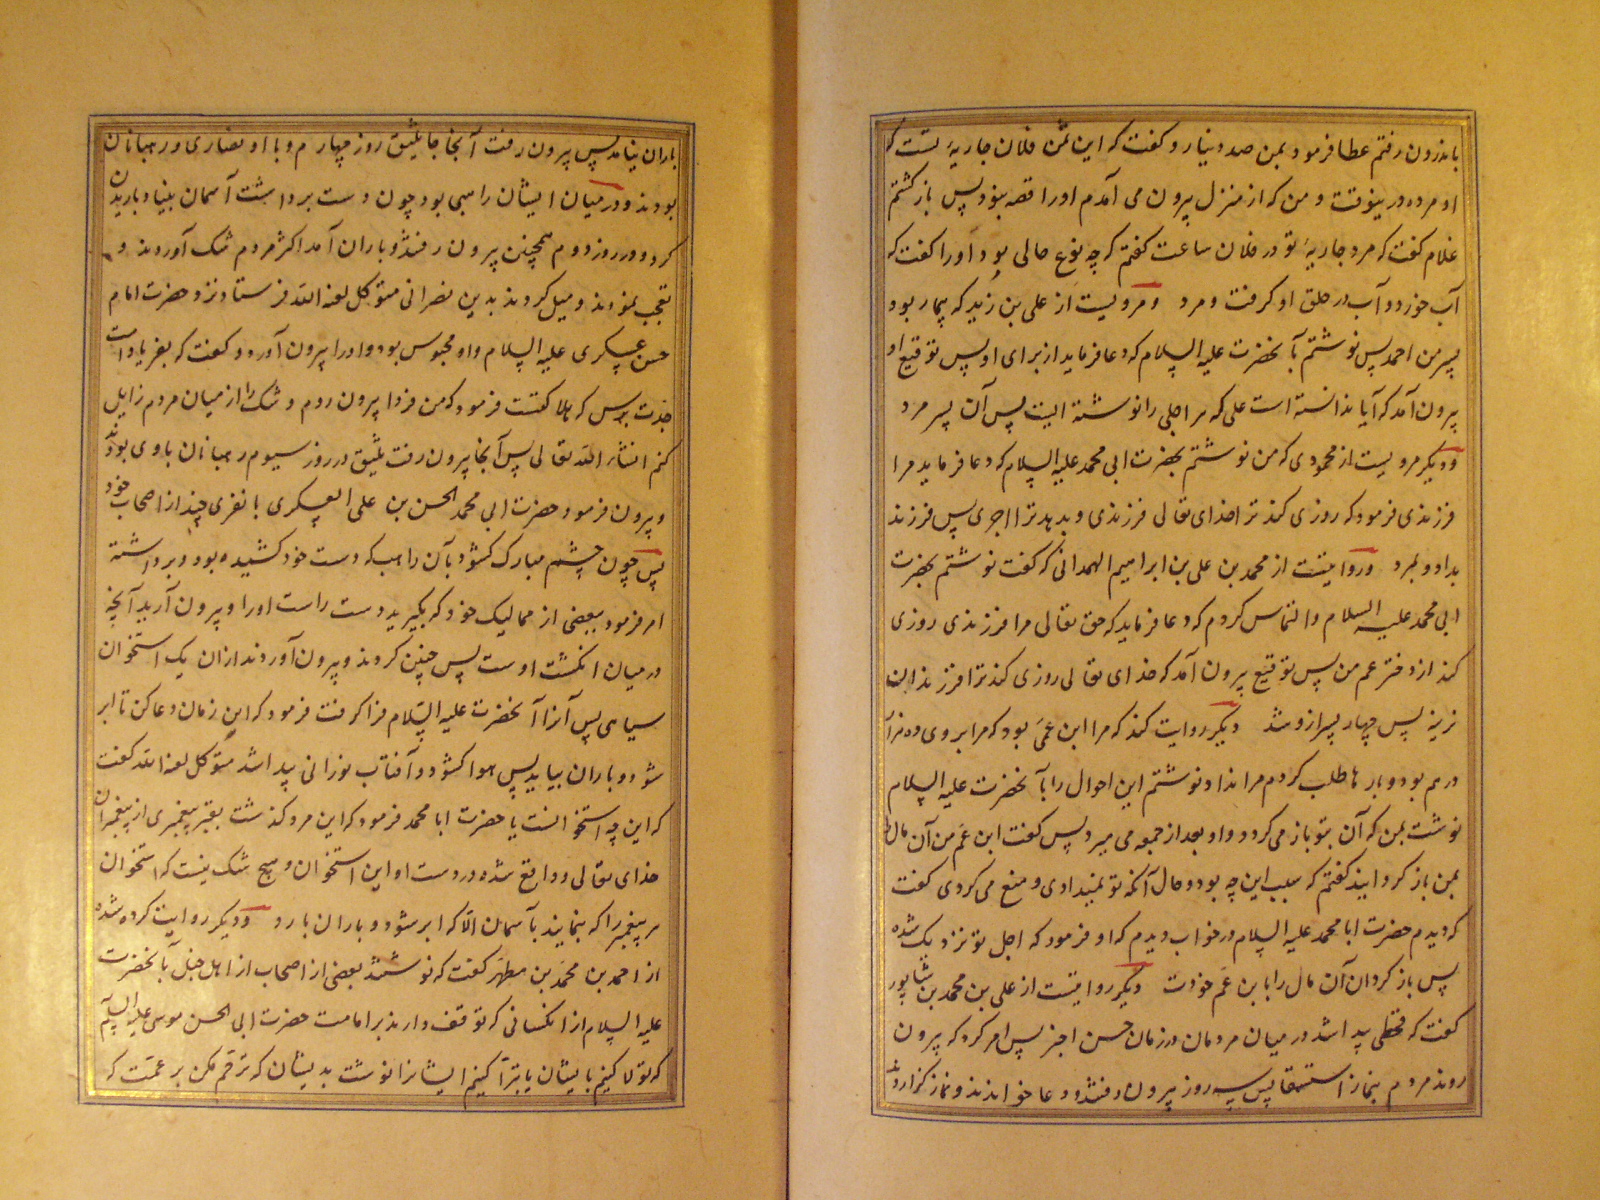 باندرون رفتم عطا فرمود بمن صد دینار و گفت که این ثمن فلان جاریهٔ تست که
او مرده درینوقت و من که از منزل بیرون می آمدم او را قصه نبود پس باز گشتم
غلام گفت که مرد جاریهٔ تو در فلان ساعت گفتم که چه نوع حالی بود او را گفت که
آب خورد و آب در حلق او گرفت و مرد و مرویست از علی بن زید که بیمار بود
پسر من احمد پس نوشتم بآنحضرت علیه السلام که دعا فرماید از برای او پس توقیع او
بیرون آمد که آیا ندانسته است علی که هر اجلی را نوشته ایست پس آن پسر مرد
و دیگر مرویست از محمودی که من نوشتم بحضرت ابی محمد علیه السلام که دعا فرماید مرا
فرزندی فرمود که روزی کند ترا خدای تعالی فرزندی و بدهد ترا اجری پس فرزند
بداد و بمرد و روایتست از محمد بن علی بن ابراهیم الهمدانی که گفت نوشتم بحضرت
ابی محمد علیه السلام و التماس کردم که دعا فرماید که حق تعالی مرا فرزندی روزی
کند از دختر عم من پس توقیع بیرون آمد که خدای تعالی روزی کند ترا فرزندان
نرینه پس چهار پسر ازو شد دیگر روایت کند که مرا ابن عمی بود که مرا بر وی ده هزار
درهم بود و بارها طلب کردم مرا نداد نوشتم این احوال را بآنحضرت علیه السلام
نوشت بمن که آن بتو باز می گردد و او بعد از جمعه می میرد پس گفت ابن عم من آن مال را
بمن باز گردانید گفتم که سبب این چه بود و حال آنکه تو نمیدادی و منع می کردی گفت
که دیدم حضرت ابا محمد علیه السلام در خواب دیدم که او فرمود که اجل تو نزدیک شده
پس باز گردان آن مال را بابن عم خودت دیگر روایتست از علی بن محمد بن شاپور
گفت که قحطی پیدا شد در میان مردمان در زمان حسن اخیر پس امر کرد که بیرون
روند مردم بنماز استسقا پس سه روز بیرون رفتند و دعا خواندند و نماز گزاردند
باران نیامد پس بیرون رفت آنجا جاثلیق روز چهارم و با او نصاری و رهبانان
بودند و در میان ایشان راهبی بود چون دست برداشت آسمان بنیاد باریدن
کرد و در روز دوم همچنین بیرون رفتند و باران آمد اکثر مردم شک آوردند و
تعجب نمودند و میل کردند بدین نصرانی متوکل لعنه الله فرستاد نزد حضرت امام
حسن عسکری علیه السلام و او محبوس بود و او را بیرون آورد و گفت که بفریاد امت
جدت برس که هلاک گشت فرمود که من فردا بیرون روم و شک را از میان مردم زایل
کنم انشاء الله تعالی پس آنجا بیرون رفت ثلیق در روز سیوم رهبانان با وی بودند
و بیرون فرمود حضرت ابی محمد الحسن بن علی العسکری با نفری چند از اصحاب خود
پس چون چشم مبارک گشود بآن راهب که دست خود کشیده بود و برداشته
امر فرمود ببعضی از ممالیک خود که بگیرید دست راست او را و بیرون آرید آنچه
در میان انگشت اوست پس چنین کردند و بیرون آوردند از آن یک استخوان
سیاهی پس آنرا آنحضرت علیه السلام فرا گرفت فرمود که این زمان دعا کن تا ابر
شود و باران بیاید پس هوا گشود و آفتاب نورانی پیدا شد متوکل لعنه الله گفت
که این چه استخوانست یا حضرت ابا محمد فرمود که این مرد گذشت بقبر پیغمبری از پیغمبران
خدای تعالی و واقع شده در دست او این استخوان و هیچ شک نیست که استخوان
هر پیغمبر را که بنمایند بآسمان الا که ابر شود و باران بارد و دیگر روایت کرده شده
از احمد بن محمد بن مطهر گفت که نوشتند بعضی از اصحاب از اهل جبل بآنحضرت
علیه السلام از انکسانی که توقف دارند بر امامت حضرت ابی الحسن موسی علیه السلام
که تولا کنیم بایشان یا تبرا کنیم ایشانرا نوشت بدیشان که ترحم مکن بر عمت که